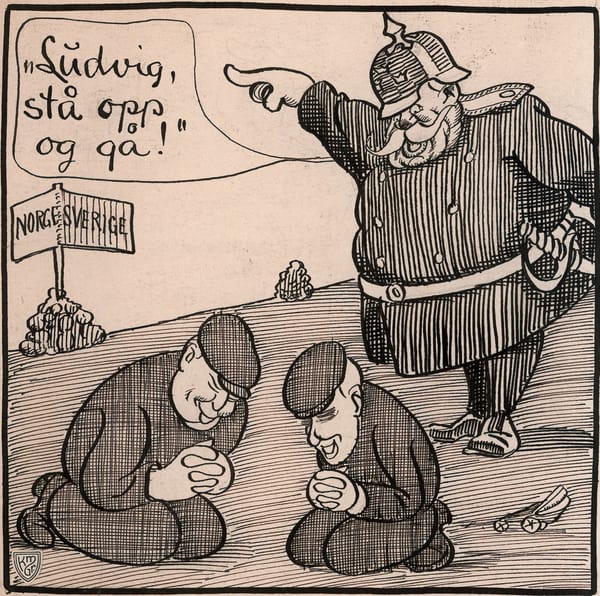 „Ludvig,
stå opp
og gå!“
NORGE SVERIGE